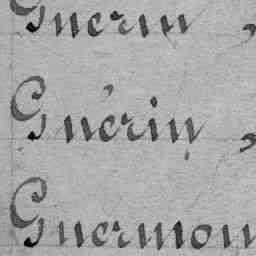 Guerin,
Guérin,
Guermon